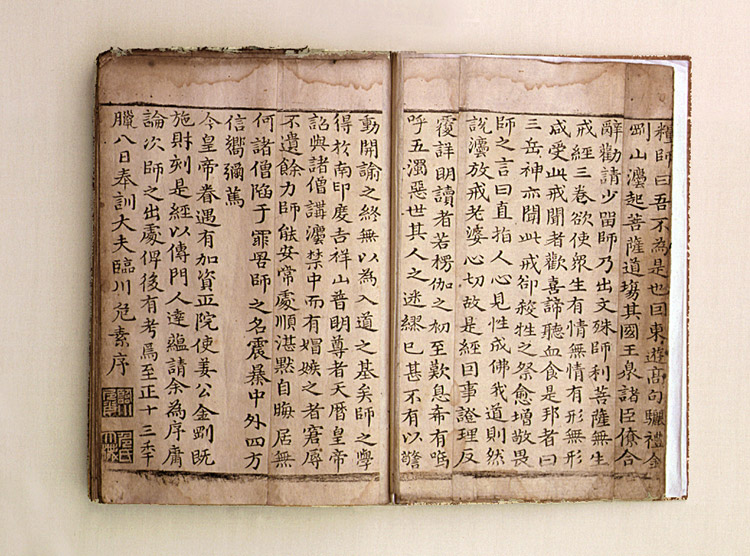 糧師曰吾不為是也囙東遊高句驪禮金
剛山灋起菩薩道場其國王衆諸臣僚合
辭勸請少留師乃出文殊師利菩薩無生
戒經三卷欲使衆生有情無情有形無形
咸受此戒聞者歡喜諦聽血食是邦者曰
三岳神亦聞此戒卻殺牲之祭愈增敬畏
師之言曰直指人心見性成佛我道則然
說灋放戒老婆心切故是經囙事證理反
覆詳明讀者若楞伽之初至歎息希有嗚
呼五濁惡世其人之迷繆已甚不有以警
動開諭之終無以為入道之基矣師之學
得於南印度吉祥山普明尊者天曆皇帝
詔與諸僧講灋禁中而有媢嫉之者窘辱
不遺餘力師能安常處順湛默自晦居無
何諸僧陷于罪罟師之名震暴中外四方
信嚮彌篤
今皇帝眷遇有加資正院使姜公金剛既
施財刻是經以傳門人達蘊請余為序庸
論次師之出處俾後有考焉至正十三年
臘八日奉訓大夫臨川危素序